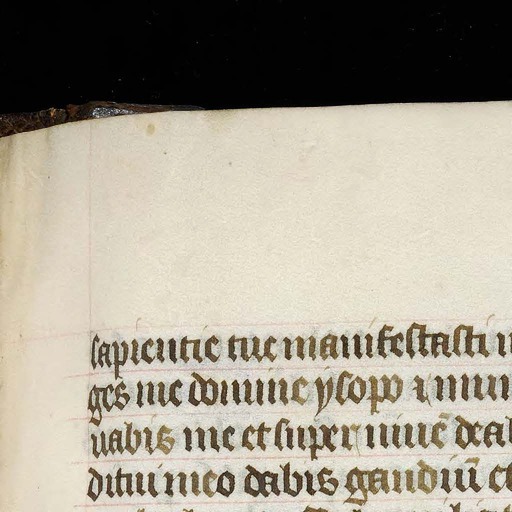 sapientie tue manifestasti
ges me domine ysopo ⁊ mun
uabis me et super niuē deal
ditui meo dabis gaudiū et